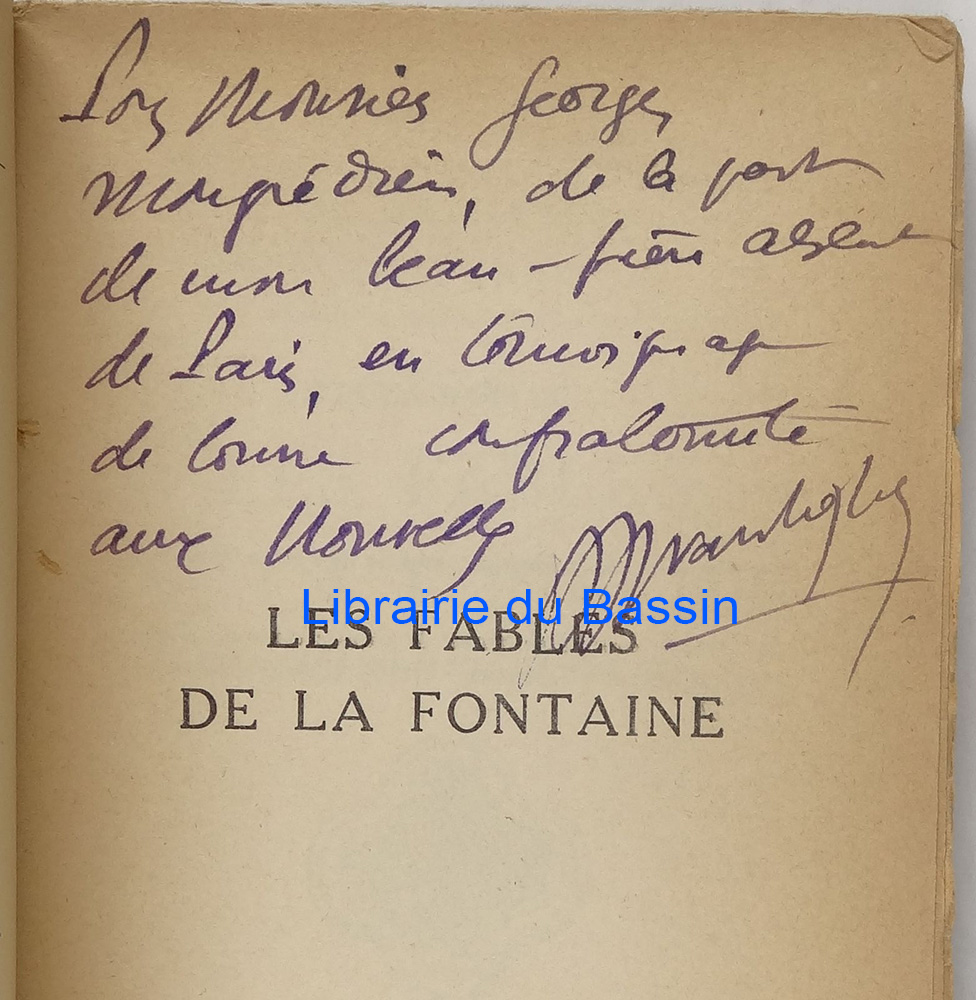 Pour Monsieur Georges
Mongrédien, de la part
de mon beau-frère absent
de Paris, en témoignage
de bonne confraternité
aux Nouvelles
Librairie du Bassin
LES FABLES
DE LA FONTAINE